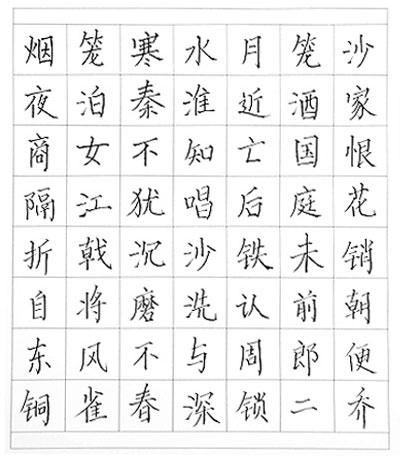 烟笼寒水月笼沙
夜泊秦淮近酒家
商女不知亡国恨
隔江犹唱后庭花
折戟沉沙铁未销
自将磨洗认前朝
东风不与周郎便
铜雀春深锁二乔